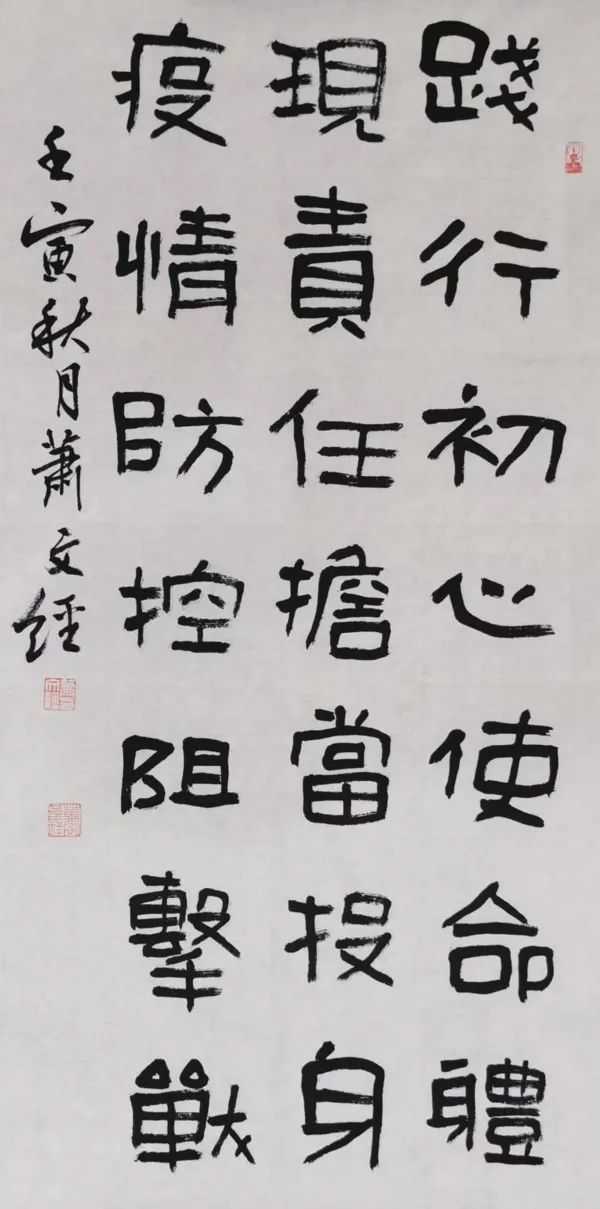 踐行初心使命體
現責任擔當投身
疫情防控阻擊戰
壬寅秋月蕭文經